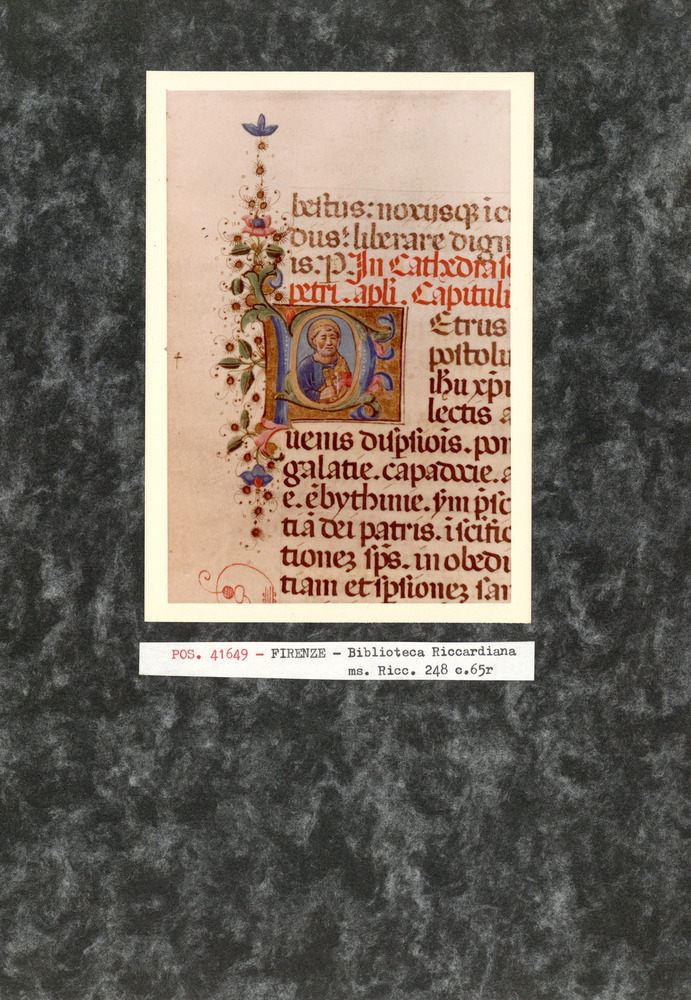 bestus: noxijsq; ic
dius: liberare dign
is. P. In Cathedra s
petri. apli. Capituli
Etrus
postolu
ihu xpi
lectis a
uenis dispsiois. pon
galatie. capadocie. a
e. ēbythinie. sm psc
tiā dei patris. i scific
tionez sps. in obedi
tiam et spsionez san
POS. 41649 - FIRENZE - Biblioteca Riccardiana
ms. Ricc. 248 c.65r